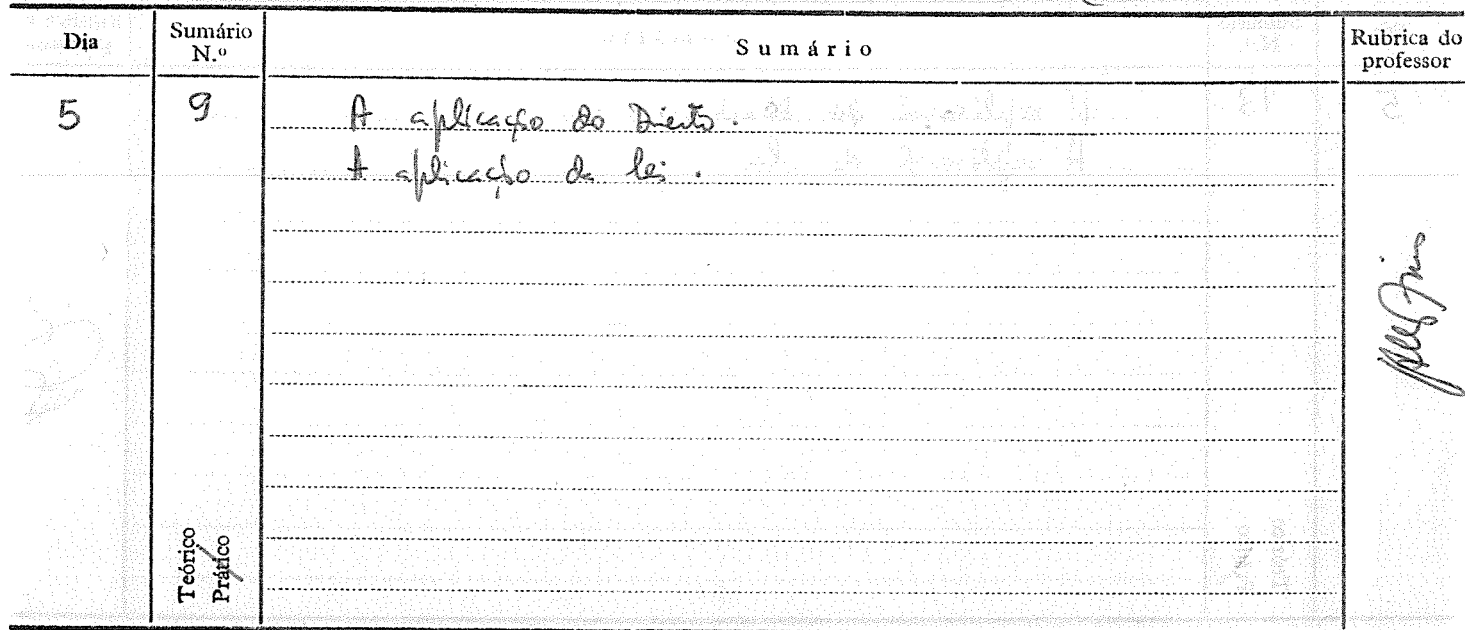 Dia
Sumário N.º
Sumário
Rubrica do professor
5
9
A aplicação do Direito.
A aplicação da lei.
Teórico
Prático